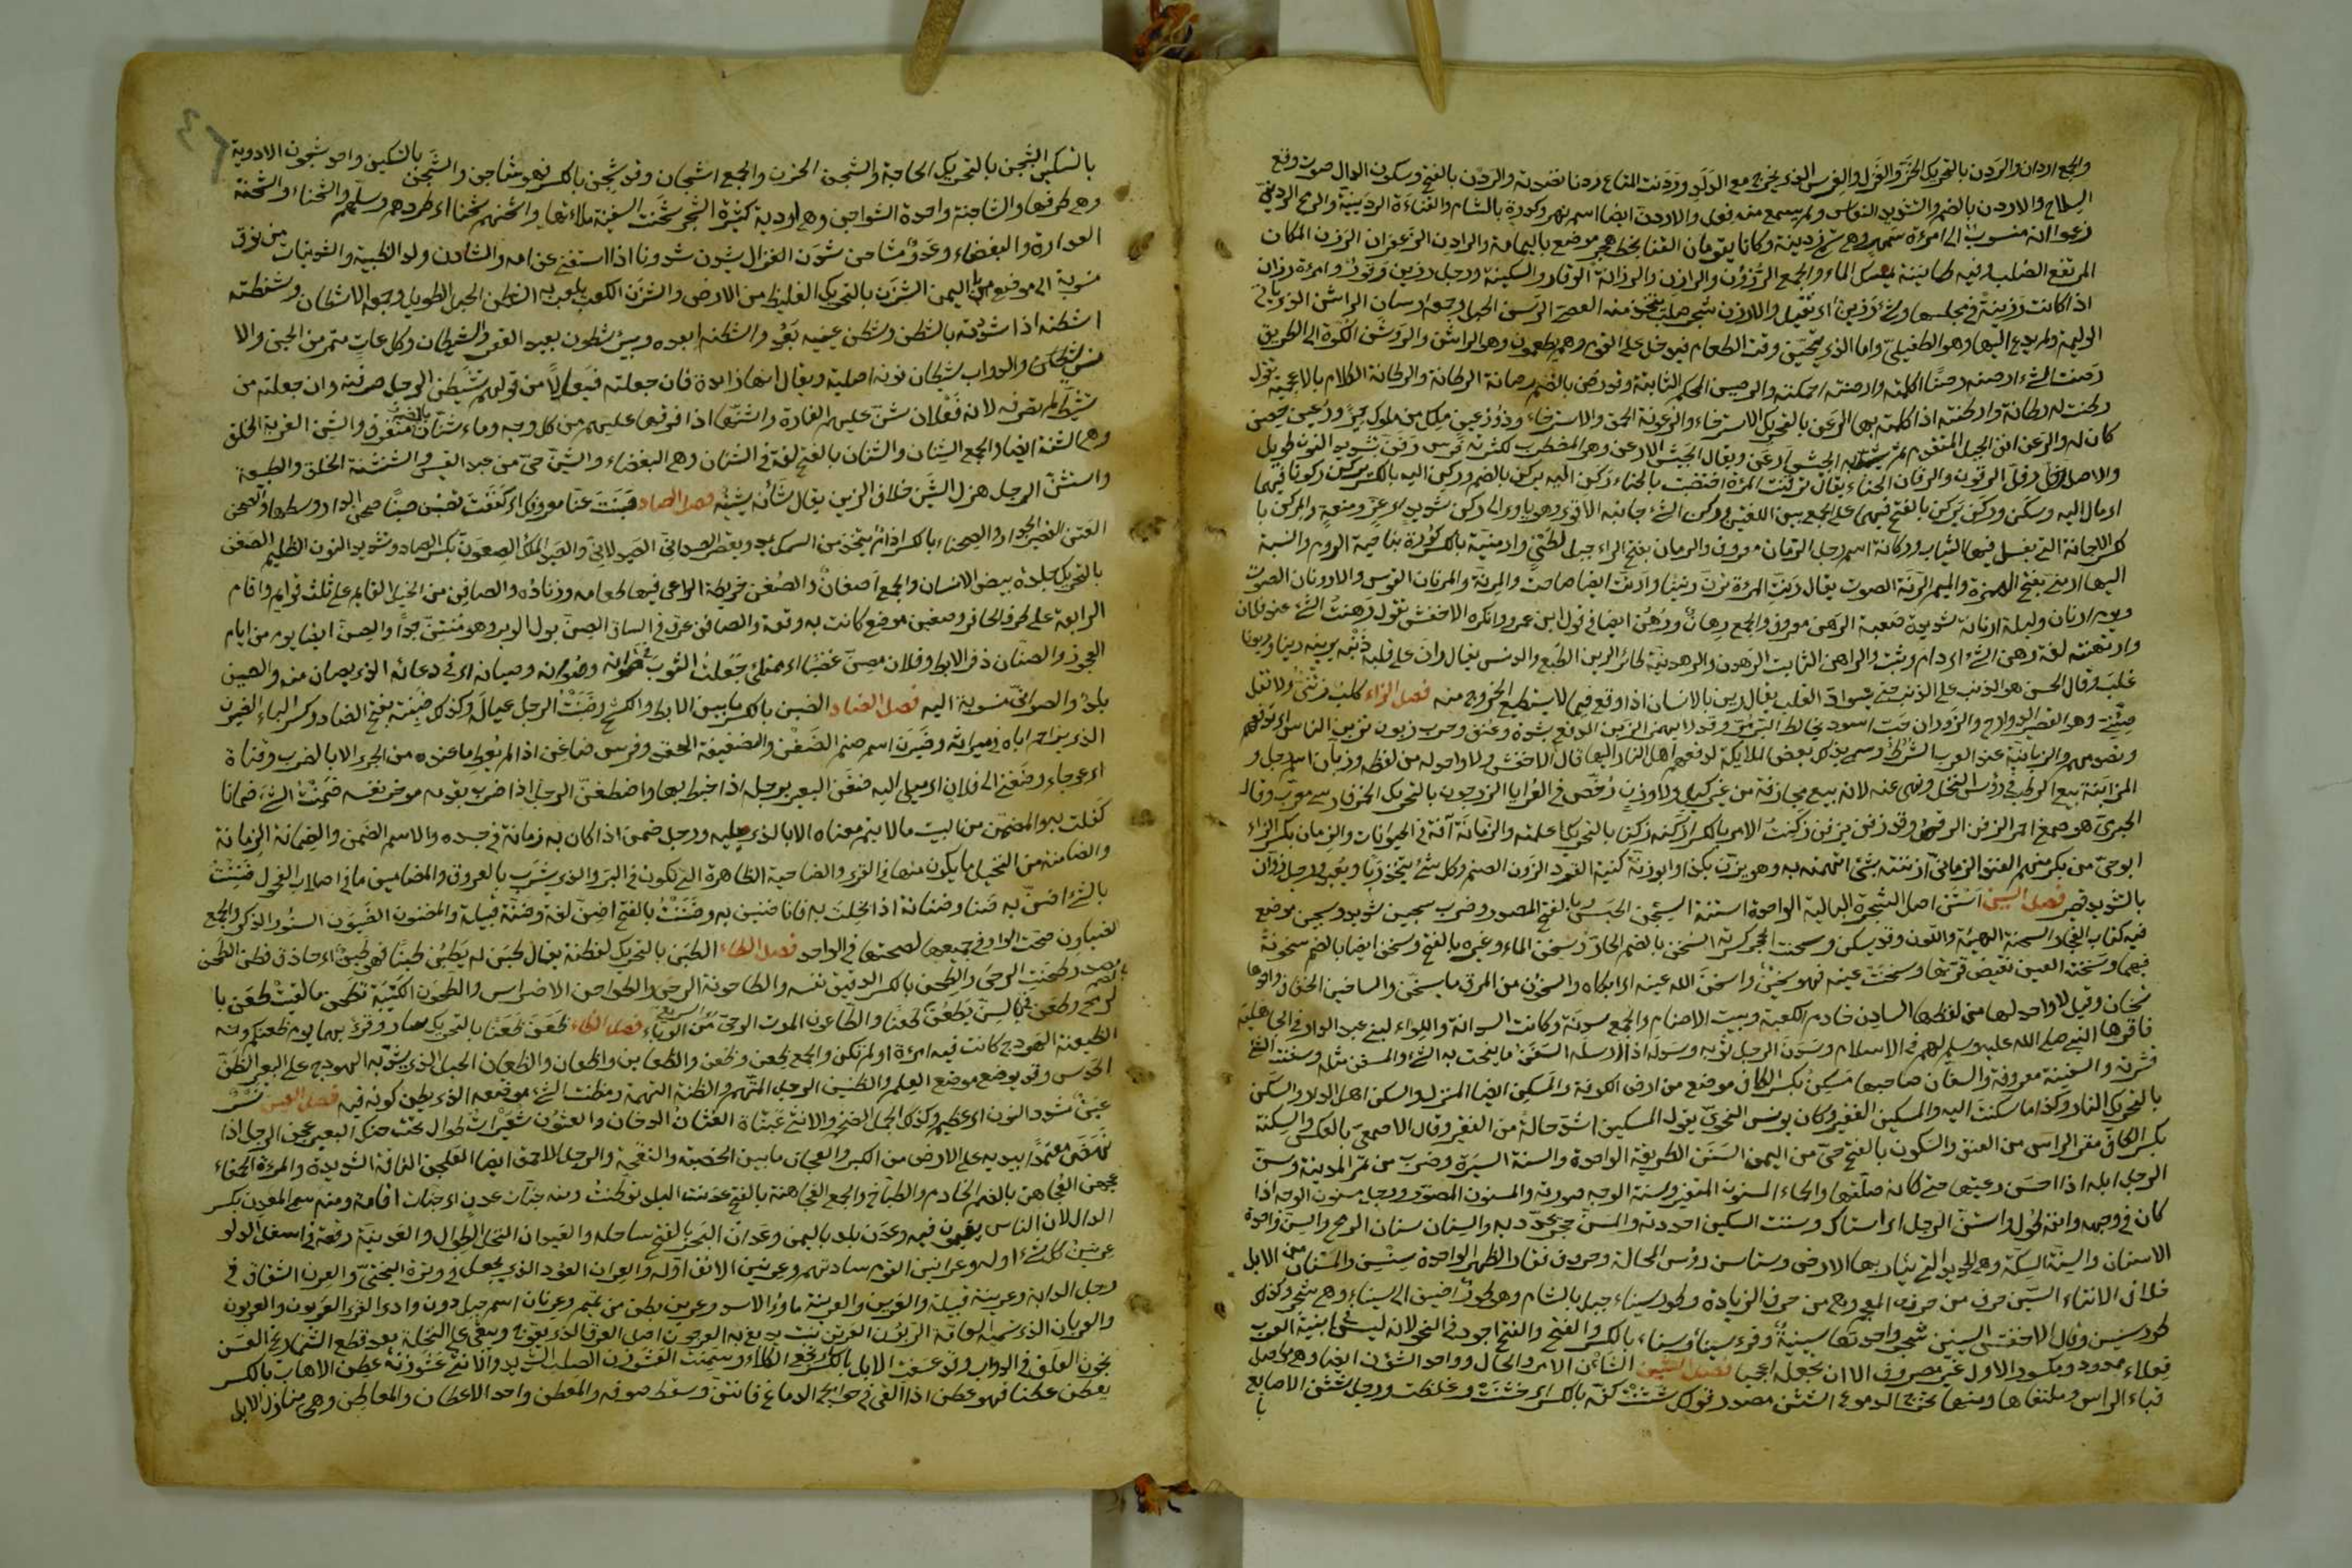 والجمع اردان والردن بالتحريك الخز والغزل والغرس الذي يخرج مع الولد وردنت المتاع ردنا نضدته والردن بالفتح وسكون الدال صوت وقع
السلاح والاردن بالضم والتشديد النعاس ولم يسمع منه فعل والاردن ايضا اسم نهر وكورة بالشام والقناة الردينية والرمح الرديني
زعموا انه منسوب الى امرأة سمهر وهي تسمى ردينة وكانا يقومان القنا بخط هجر موضع باليمامة والرادن الزعفران الرزن المكان
المرتفع الصلب وفيه طمانينة يمسك الماء والجمع الرزون والرزان والرزانة الوقار والسكينة ورجل رزين وامرأة رزان
اذا كانت رزينة في مجلسها وشئ رزين اي ثقيل والارزن شجر صلب يتخذ منه العصي الرسن الحبل وجمعه ارسان الراشن الذي ياتي
الوليمة ولم يدع اليها وهو الطفيلي واما الذي يتحين وقت الطعام فيدخل على القوم وهم يطعمون وهو الوارش والروشن الكوة الى الطريق
رصنت الشئ ارصنه رصنا اكملته وارصنته احكمته والرصين المحكم الثابت وقد رصن بالضم رصانة الرطانة والرطانة الكلام بالاعجمية تقول
رطنت له رطانة وراطنته اذا كلمته بها الرعن بالتحريك الاسترخاء والرعونة الحمق والاسترخاء وذو رعين ملك من ملوك حمير ورعين حصن
كان له والرعن انف الجبل المتقدم ثم شبه به الجيش ويقال الجيش الارعن وهو المضطرب لكثرته فرس رفن بتشديد النون طويل
والاصل رفل الرقون والرقان الحناء يقال ترقنت المرأة اختضبت بالحناء ركن اليه يركن بالضم وركن اليه بالكسر يركن ركونا فيهما
اي مال اليه وسكن وركن يركن بالفتح فيهما على الجمع بين اللغتين وركن الشئ جانبه الاقوى وهو ياوي الى ركن شديد اي عز ومنعة والمركن با
لكسر الاجانة التي يغسل فيها الثياب وركانة اسم رجل الرمان معروف والرمان بفتح الراء جبل لطئ وارمينية بالكسر كورة بناحية الروم والنسبة
اليها ارمني بفتح الهمزة والميم الرنة الصوت يقال رنت المرأة ترن رنينا وارنت ايضا صاحت والمرنة والمرنان القوس والارونان الصوت
ويوم ارونان وليلة ارونانة شديدة صعبة الرهن معروف والجمع رهان ورهن ايضا في قول ابي عمرو وانكره الاخفش تقول رهنت الشئ عند فلان
وارتهنته لغة رهن الشئ اي دام وثبت والراهن الثابت الرهدن والرهدنة طائر الرين الطبع والدنس يقال ران على قلبه ذنبه يرين رينا وريونا
غلب وقال الحسن هو الذنب على الذنب حتى يسواد القلب يقال رين بالانسان اذا وقع فيما لا يستطيع الخروج منه فصل الزاء كلب زئني ولا تقل
صيني وهو القصير الزؤان حب اسود يخالط البر وقد لا يهمز الزبن الدفع بشدة وعنف وحرب زبون تزبن الناس اي تدفعهم
وتصدمهم والزبانية عند العرب الشرط وسمي بذلك بعض الملايكة لدفعهم اهل النار اليها قال الاخفش ولا واحد له من لفظه وزبان اسم رجل و
المزابنة بيع الرطب في رؤس النخل ونهى عنه لانه بيع مجازفة من غير كيل ولا وزن ورخص في العرايا الزرجون بالتحريك الخمر فارسي معرب وقال
الجرمي هو صبغ احمر الزفن الرقص وقد زفن يزفن زكنت الامر بالكسر ازكنه زكنا بالتحريك علمته والزمانة آفة في الحيوانات والزمان بكسر الزاء
ابو حي من بكر منهم الفند الزماني ازننته بشئ اتهمته به وهو يزن بكذا وابو زنة كنية القرد الزون الصنم وكل شئ يتخذ ربا ويعبد ورجل زون
بالتشديد قصير فصل السين استن اصل الشجرة البالية الواحدة استنة السجن الحبس وبالفتح المصدر وضرب سجين شديد وسجين موضع
فيه كتاب الفجار السحنة الهيئة واللون وقد يسكن وسحنت الحجر كسرته السخن بالضم الحار سخن الماء وغيره بالفتح وسخن ايضا بالضم سخونة
فيهما وسخنة العين نقيض قرتها وسخنت عينه فهو سخين واسخن الله عينه اي ابكاه والسخون من المرق ما يسخن والتساخين الخفاف واحدها
تسخان وقيل لا واحد لها من لفظها السادن خادم الكعبة وبيت الاصنام والجمع سدنة وكانت السدانة واللواء لبني عبد الدار في الجاهلية
فاقرها النبي صلى الله عليه وسلم لهم في الاسلام وسدن الرجل ثوبه وسدله اذا ارسله السفن ما ينحت به الشئ والمسفن مثله وسفنت الشئ
قشرته والسفينة معروفة والسفان صاحبها مسكن بكسر الكاف موضع من ارض الكوفة والمسكن ايضا المنزل والسكن اهل الدار والسكن
بالتحريك النار وكذا ما سكنت اليه والمسكين الفقير وكان يونس النحوي يقول المسكين اشد حالا من الفقير وقال الاصمعي بالعكس والسكنة
بكسر الكاف مقر الراس من العنق والسكون بالفتح حي من اليمن السنن الطريقة الواحدة والسنة السيرة وضرب من تمر المدينة وسن
الرجل ابله اذا احسن رعيتها حتى كانه صقلها والحماء المسنون المتغير وسنة الوجه صورته والمسنون المصور ورجل مسنون الوجه اذا
كان في وجهه وانفه طول واستن الرجل اي استاك وسننت السكين احددته والمسن حجر يحدد به والسنان سنان الرمح والسن واحدة
الاسنان والسنة السكة وهي الحديدة التي يثار بها الارض وسناسن رؤس المحالة وحروف فقار الظهر الواحدة سنسن والمسان من الابل
خلاف الافتاء السين حرف من حروف المعجم وهي من حروف الزيادة وطور سيناء جبل بالشام وهو طور اضيف الى سيناء وهي شجر وكذلك
طور سنين وقال الاخفش السينين شجر واحدتها سينينة وقرئ سيناء وسيناء بالكسر والفتح والفتح اجود في النحو لانه ليس في ابنية العرب
فعلاء ممدود مكسور الاول غير مصروف الا ان تجعله اعجميا فصل الشين الشأن الامر والحال وواحد الشؤن ايضا وهي مواصل
قبائل الراس وملتقاها ومنها تجئ الدموع الشثن مصدر قولك شثنت كفه بالكسر اي خشنت وغلظت ورجل شثن الاصابع
با
بالتسكين الشجن بالتحريك الحاجة والشجن الحزن والجمع اشجان وقد شجن بالكسر فهو شاجن والشجن بالتسكين واحد شجون الاودية
وهي طرقها والشاجنة واحدة الشواجن وهي اودية كثيرة الشجر شحنت السفينة ملأتها واشحنهم شحنا اي طردهم وسلهم والشحناء والشحنة
العداوة والبغضاء وعدو مشاحن شدن الغزال يشدن شدونا اذا استغنى عن امه والشادن ولد الظبية والشدنيات من نوق
منسوبة الى موضع باليمن الشزن بالتحريك الغليظ من الارض والشزن الكعب يلعب به الشطن الحبل الطويل وجمعه الاشطان وشطنته
اشطنه اذا شددته بالشطن وشطن عنه بعد واشطنه ابعده وبئر شطون بعيدة القعر والشيطان وكل عات متمرد من الجن والا
نس والدواب شيطان نونه اصلية ويقال انها زائدة فان جعلته فيعالا من قولهم تشيطن الرجل صرفته وان جعلته من
تشيط لم تصرفه لانه فعلان شن عليهم الغارة واشنها اذا فرقها عليهم من كل وجه وماء شنان بالضم متفرق والشن القربة الخلق
وهي الشنة ايضا والجمع الشنان والشنان بالفتح لغة في الشنآن وهي البغضاء والشن حي من عبد القيس والشنشنة الخلق والطبيعة
واستشن الرجل هزل الشين خلاف الزين يقال شأنه يشينه فصل الصاد صبنت عنا معروفك اي كففت تصبن صبنا صحن الدار وسطها والصحن
العس القصير الجدار والصحناء بالكسر ادام يتخذ من السمك يمد ويقصر الصيداني الصيدلاني والصيدن الملك الصعون بكسر الصاد وتشديد النون الظليم الصفن
بالتحريك جلدة بيض الانسان والجمع اصفان والصفن خريطة الراعي فيها طعامه وزناده والصافن من الخيل القايم على ثلث قوايم واقام
الرابعة على طرف الحافر وصفين موضع كانت به وقعة والصافن عرق في الساق الصن بول الوبر وهو منتن جدا والصن ايضا يوم من ايام
العجوز والصنان ذفر الابط وفلان مصن غضبا اي ممتلئ جعلت الثوب في صوانه وصوانه وصيانه اي في دعائه الذي يصان منه والصين
بلد والصواني منسوبة اليه فصل الضاد الضبن بالكسر ما بين الابط والكشح وضبنة الرجل عياله وكذلك ضبنة بفتح الضاد وكسر الباء الضيزن
الذي يزاحم اباه في امرأته وضيزن اسم صنم الضغن والضغينة الحقد وفرس ضاغن اذا لم يعط ما عنده من الجري الا بالضرب وقناة
اي عوجاء وضغن الى فلان اي ميل اليه ضفن البعير برجله اذا خبط بها واضطفن الرجل اذا ضرب بقدمه مؤخر نفسه ضمنت الشئ ضمانا
كفلت به والمضمن من البيت ما لا يتم معناه الا بالذي يليه ورجل ضمن اذا كان به زمانة في جسده والاسم الضمن والضمانة الزمانة
والضامنة من النخيل ما يكون منها في القرى والضاحية الظاهرة التي تكون في البر والذي يشرب بالعروق والمضامين ما في اصلاب الفحول ضننت
بالشئ اضن به ضنا وضنانة اذا بخلت به فانا ضنين به وضننت بالفتح اضن لغة وضنة قبيلة والمضنون الضيون السنور الذكر والجمع
الضياون صحت الواو في جمعها لصحتها في الواحد فصل الطاء الطبن بالتحريك الفطنة يقال طبن له يطبن طبنا فهو طبن اي حاذق فطن الطحن
مصدر طحنت الرحى والطحن بالكسر الدقيق نفسه والطاحونة الرحى والطواحن الاضراس والطحون الكتيبة تطحن ما لقيت طعن با
لرمح وطعن في السن يطعن طعنا والطاعون الموت الوحي من الوباء فصل الظاء ظعن ظعنا بالتحريك سار وقرئ بهما يوم ظعنكم ومنه
الظعينة الهودج كانت فيه امرأة او لم تكن والجمع ظعن وظعن والظعاين واظعان والظعان الحبل الذي يشد به الهودج على البعير الظن
الحدس وقد يوضع موضع العلم والظنين الرجل المتهم والظنة التهمة ومظنة الشئ موضعه الذي يظن كونه فيه فصل العين نسر
عبن مشدد النون اي عظيم وكذلك الجمل الضخم والانثى عبناة العثان الدخان والعثنون شعيرات طوال تحت حنك البعير عجن الرجل اذا
نهض معتمدا بيديه على الارض من الكبر والعجان ما بين الخصية والفقحة والرجل الاحمق ايضا العلجن الناقة الشديدة والمرأة الحمقاء
عجهن العجاهن بالضم الخادم والطباخ والجمع العجاهنة بالفتح عدنت البلد توطنت ومنه جنات عدن اي جنات اقامة ومنه سمي المعدن بكسر
الدال لان الناس يقيمون فيه وعدن بلد باليمن وعدان البحر بالفتح ساحله والعيدان النخل الطوال والعدينة رقعة في اسفل الدلو
عرنين كل شئ اوله وعرانين القوم ساداتهم وعرنين الانف اوله والعران العود الذي يجعل في وترة البختي والعرن الشقاق في
رجل الدابة وعرينة قبيلة والعرين والعرينة ماوى الاسد وعرين بطن من تميم وعرنان اسم جبل دون وادي القرى العربون والعربون
والعربان الذي تسميه العامة الربون العرتن نبت يدبغ به العرجون اصل العذق الذي يعوج ويبقى على النخلة بعد قطع الشماريخ العسن
نجوع العلف في الدواب وقد عسنت الابل بالكسر نجع الكلاء وسمنت العشوزن الصلب الشديد والانثى عشوزنة عطن الاهاب بالكسر
يعطن عطنا فهو عطن اذا القي في حوابج الدماغ فانتن وسقط صوفه والمعطن واحد الاعطان والمعاطن وهي مبارك الابل